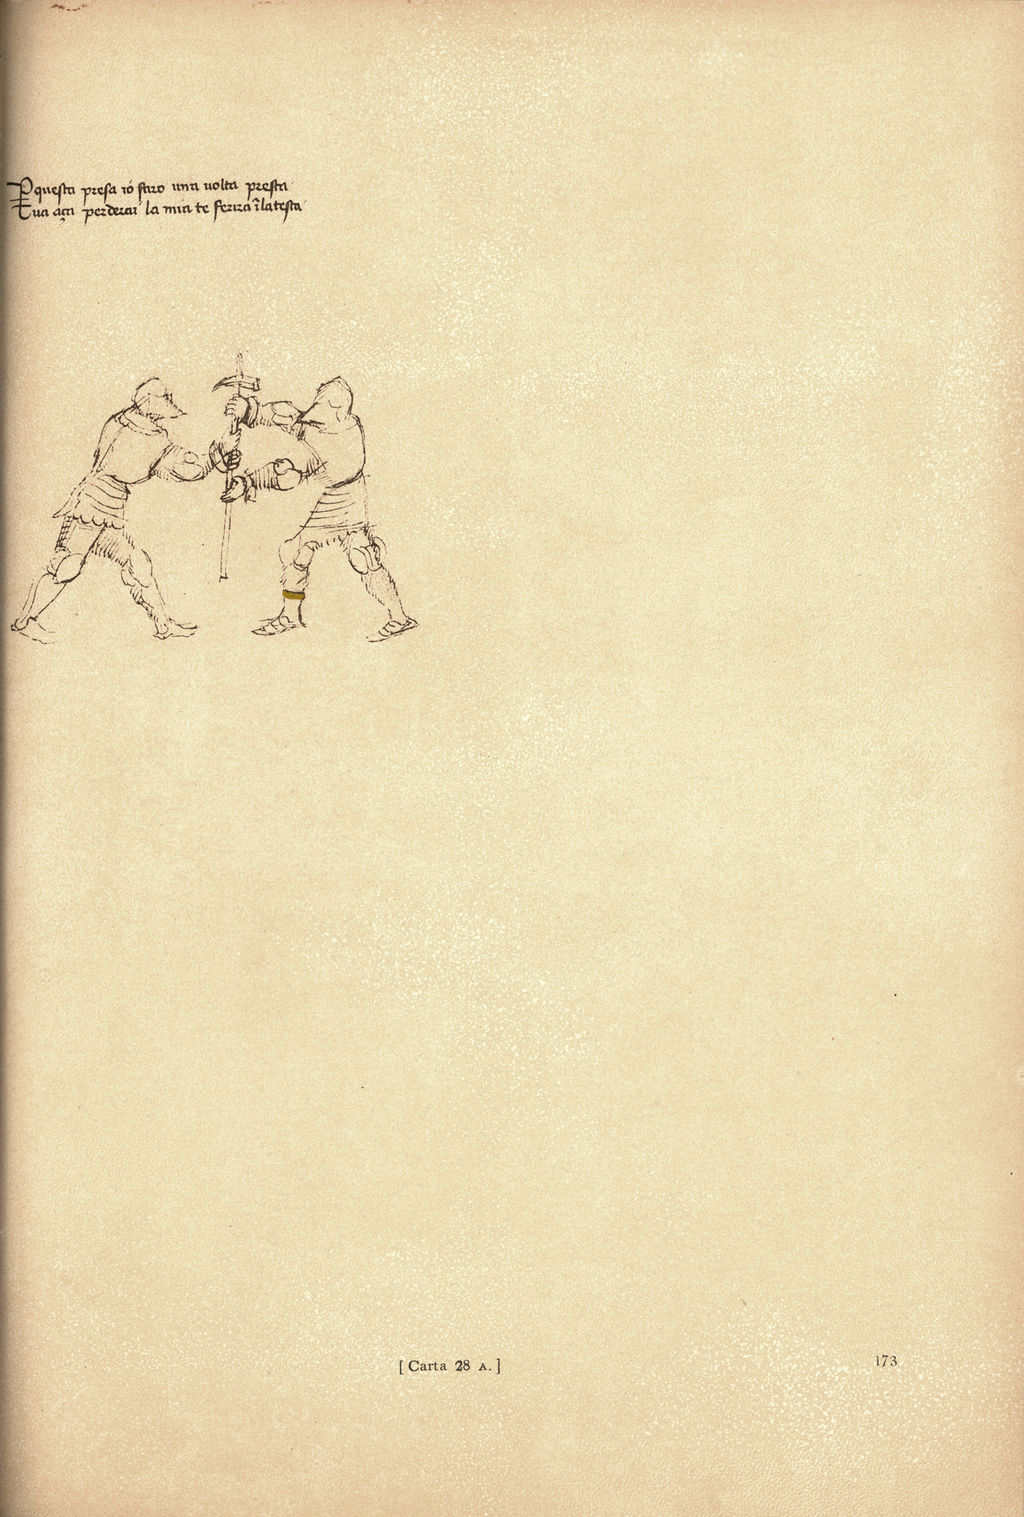 P questa presa io faro una uolta presta
Tua aça perderai la mia te ferira ĩ la testa
[ Carta 28 A. ]
173